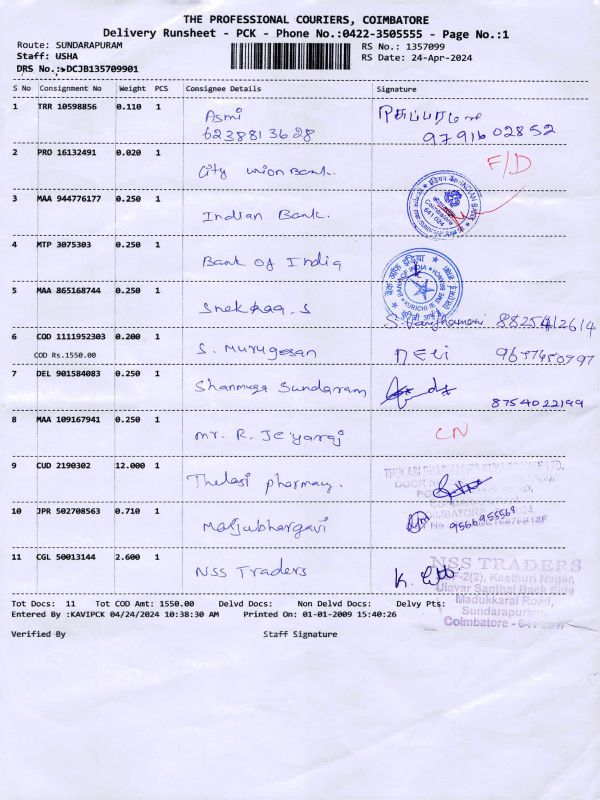 THE PROFESSIONAL COURIERS, COIMBATORE
Delivery Runsheet - PCK - Phone No.:0422-3505555 - Page No.:1
Route: SUNDARAPURAM
RS No.: 1357099
Staff: USHA
RS Date: 24-Apr-2024
DRS No.:*DCJB135709901
S No Consignment No Weight PCS Consignee Details Signature
1 TRR 10598856 0.110 1 Asmi
6238813628
9791602852
2 PRO 16132491 0.020 1 City union Bank. F/D
3 MAA 944776177 0.250 1 Indian Bank.
Coimbatore
641 024
4 MTP 3075303 0.250 1 Bank of India
बैंक ऑफ इंडिया
BANK OF INDIA
5 MAA 865168744 0.250 1
6 COD 1111952303 0.200 1 S. Murugesan
COD Rs.1550.00
7 DEL 901584083 0.250 1 Shanmuga Sundaram
8754022199
8 MAA 109167941 0.250 1 Mr. R. Jeyaraj CN
9 CUD 2190302 12.000 1 Thulasi pharmacy.
10 JPR 502708563 0.710 1 Manjubhargavi
9566955568
11 CGL 50013144 2.600 1 NSS Traders
NSS TRADERS
F-2(2), Kasthuri Nagar,
Ulavar Santhai Back Side
Madukkarai Road,
Sundarapuram,
Coimbatore -
Tot Docs: 11 Tot COD Amt: 1550.00 Delvd Docs: Non Delvd Docs: Delvy Pts:
Entered By :KAVIPCK 04/24/2024 10:38:30 AM Printed On: 01-01-2009 15:40:26
Verified By Staff Signature